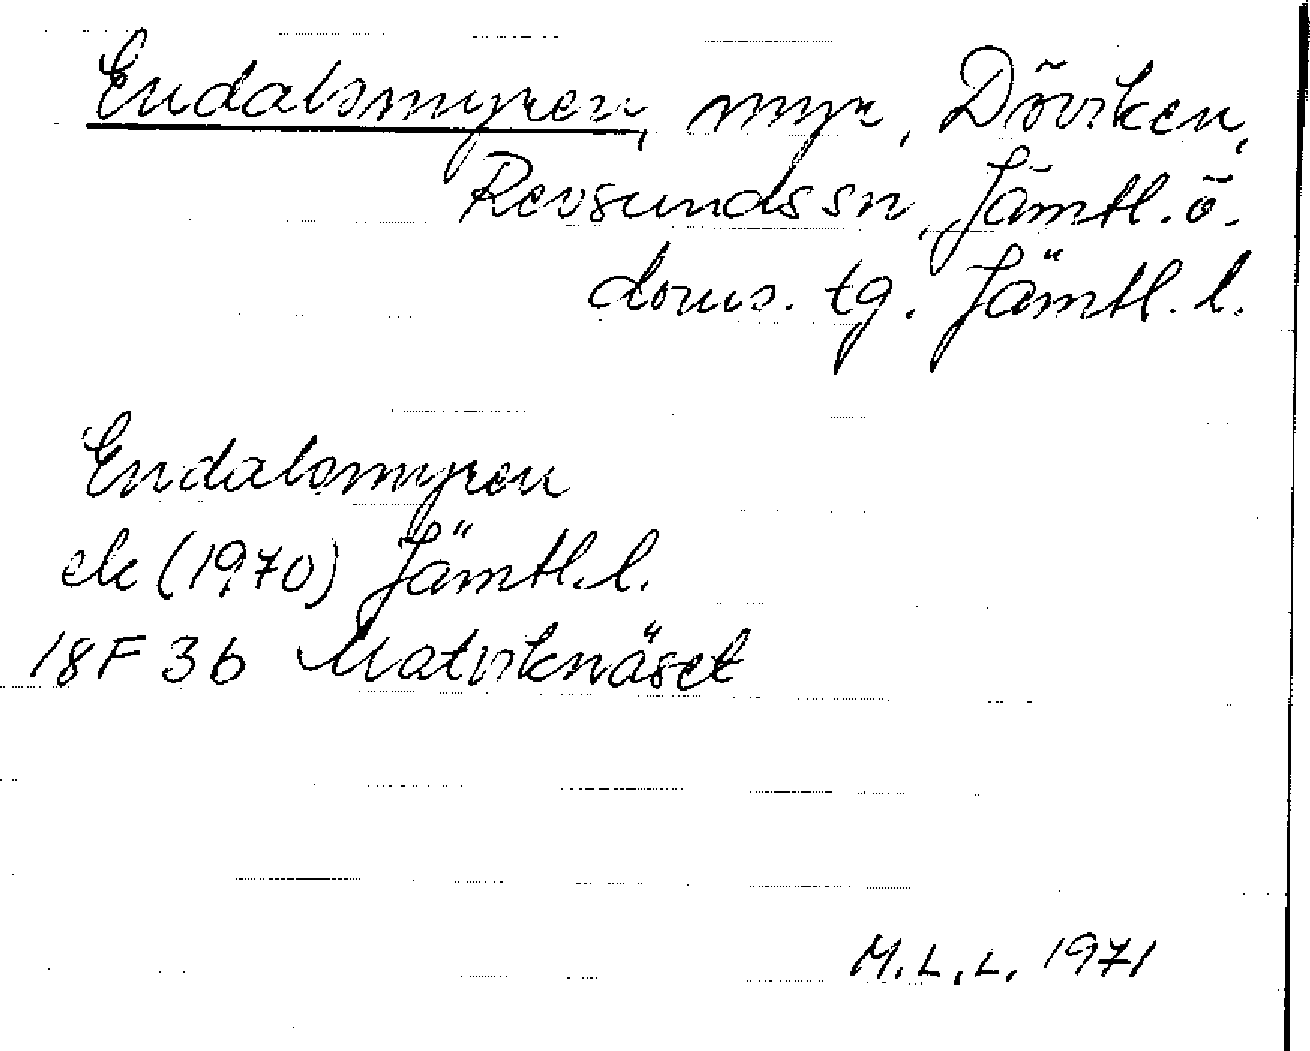 Endalsmyren, myr, Döviken,
Revsunds sn, Jämtl. ö.
doms. tg. Jämtl. l.
Endalsmyren
ek (1970) Jämtl. l.
18F 3b Matviknäset
M.L.L. 1971